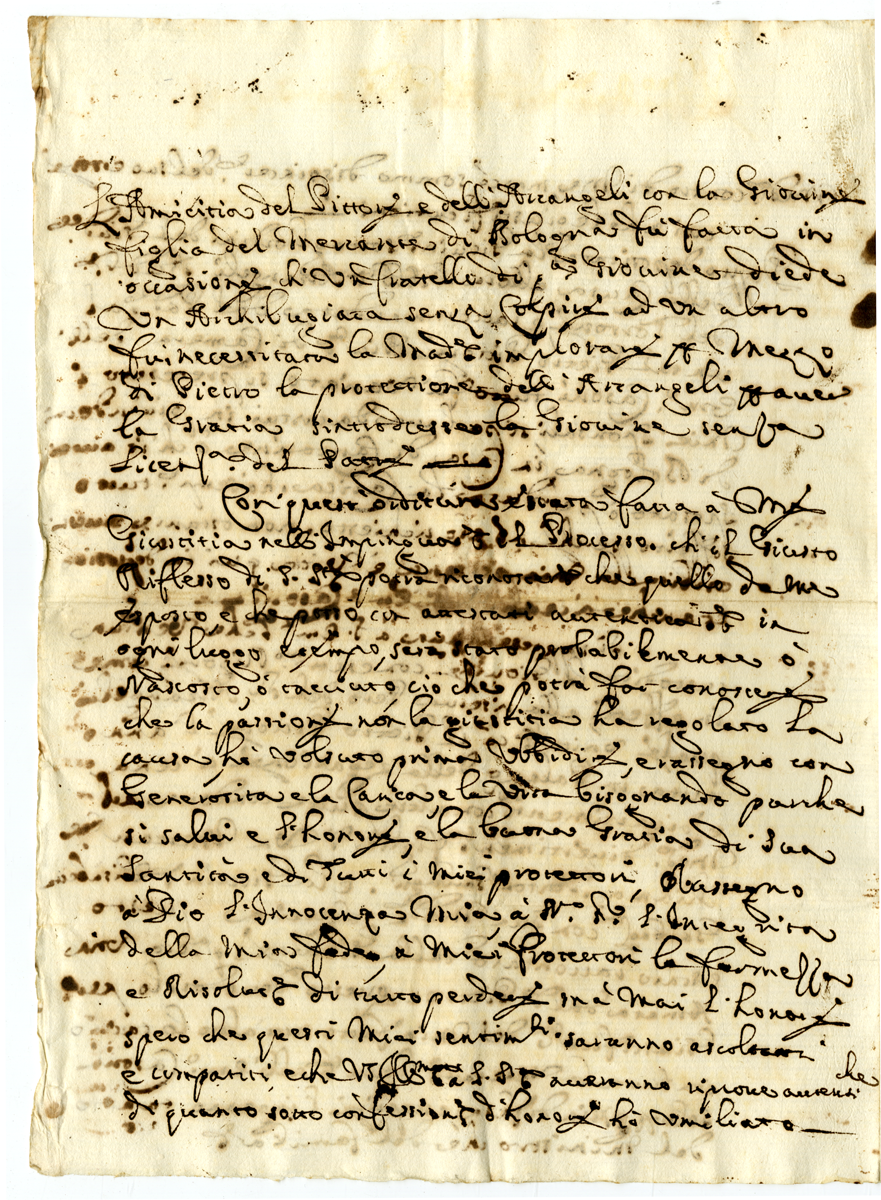 L'Amicitia del Pittore e dell'Arcangeli con la Giovine
figlia del Mercante di Bologna fu fatta in
occasione ch'un fratello di qta Giovine diede
un Archibugiata senza Colpire ad un altro
fu necessitata la Made implorare p Mezzo
di Pietro la protettione dell'Arcangeli p aver
la Gratia s'introdusse la Giovine senza
Licenza del Padre
Con questi orditure è stata fatta à Me
Giustitia nell'Impinguare il Processo. ch'il Giusto
Riflesso di S. Stà potrà riconoscere che quello da me
esposto e che posso con attestati autentici in
ogni luogo e tempo, sarà stato probabilmente ò
Nascosto, ò tacciuto, ciò che potrà far conoscere
che la passione non la giustitia ha regolato la
causa, hò volsuto prima Ubbidire, e rassegno con
Generosità e la Carica, e la Vita bisognando purche
si salvi e l'honore, e la buona Gratia di Sua
Santità e di Tutti i Miei protettori, Rassegno
à Dio l'Innocenza Mia, à N.ro S.re l'Integrità
della Mia fede, à Miei Protettori la fermezza
e Risolutne di tutto perdere mà Mai l'honore
spero che questi Miei sentim.ti saranno ascoltati
e compatiti, e che S. Stà averanno riprove autenti che
di quanto sotto confessione d'honore hò umiliato